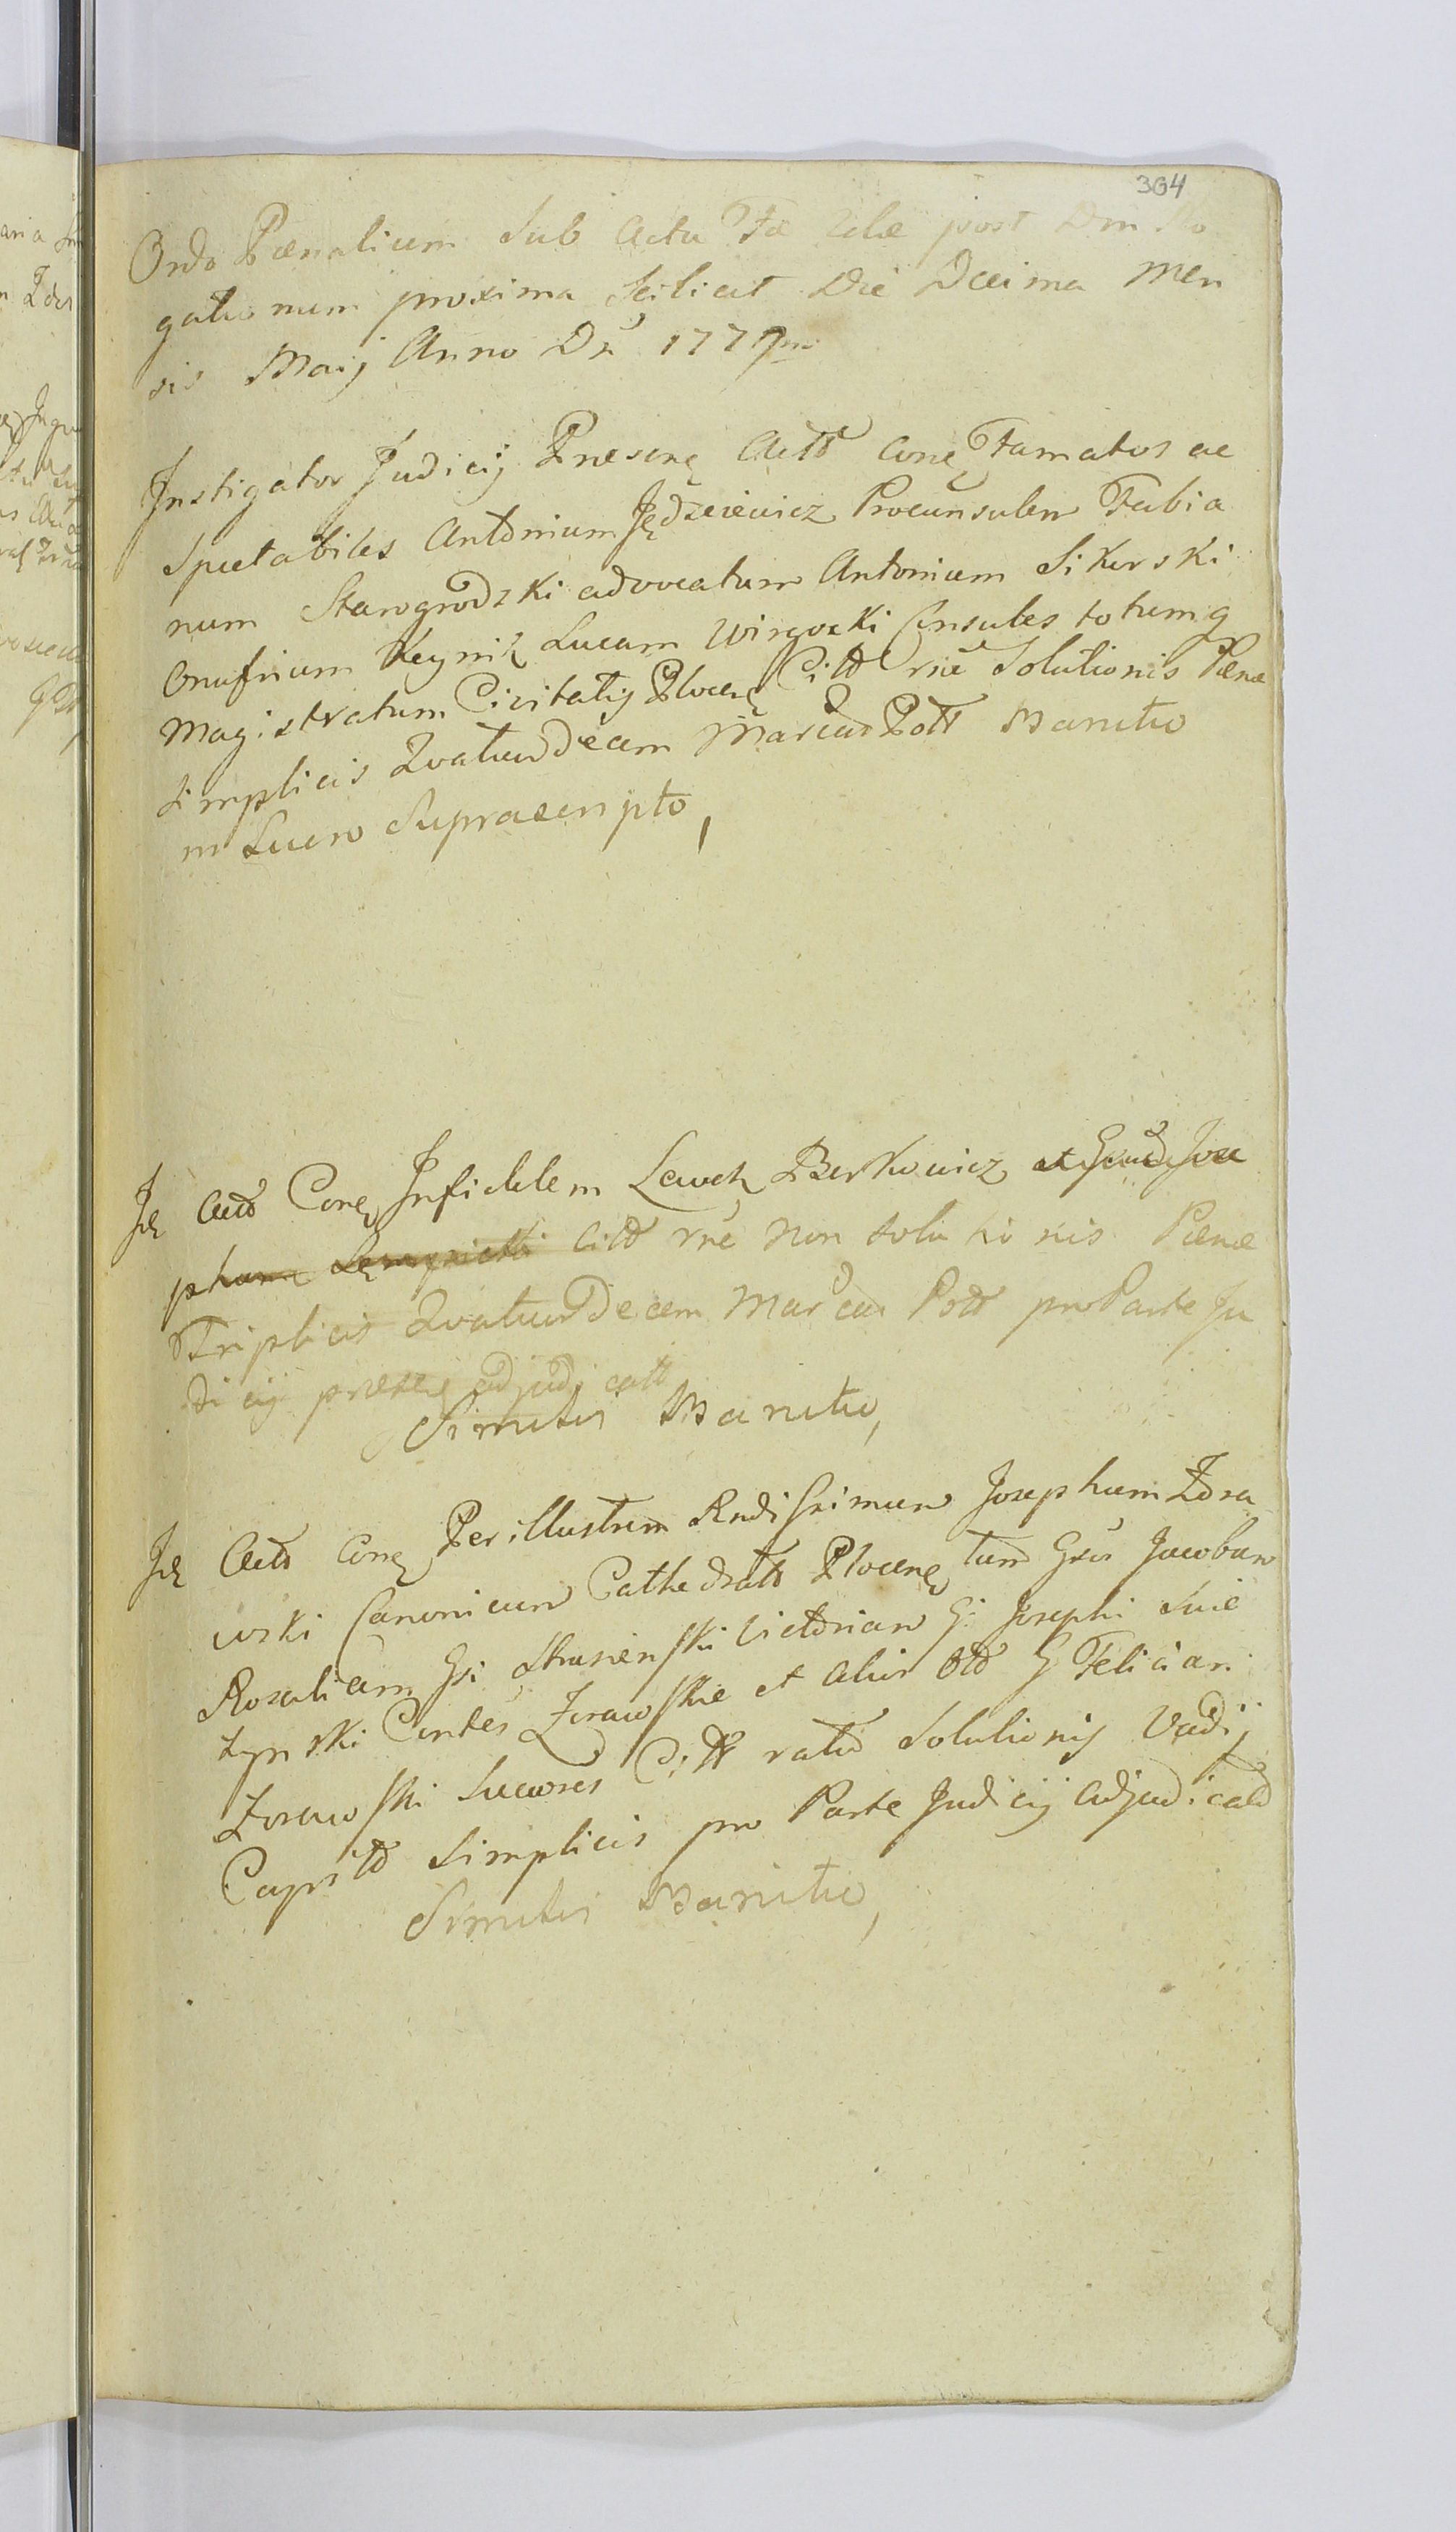 304
Ordo Pœnalium Sub Actu Fœ post Dm Ro
gationum proxima Scilicet Die Decima Men
sis Maij Anno Dni 1777mo
Instigator Judicij Præsenę Actt Conę Famatos ac
Spectabiles Antonium Jędrzeiewicz Proconsulem Fabia
num Starogrodzki advocatum Antonium Sikorski
Onufrium Keynik Lucam Wirgocki Consules totumq
Magistratum Civitatis Plocenę Citt rne Solutionis Pænæ
Simplicis Quatuordecem Marcar Pott Banitio
in Lucro Suprascripto,
Id Actt Conę Infidelem Lewek Berkowicz et Jose
phum Citt rne non solutionis Pænæ
Triplicis Quatuor Decem Marcar Pott pro Parte Ju
dicij præsenę adjudicatt
Similis Banitio,
Id Actt Conę Perillustrem Rndissimum Josephum Zora
wski Canonicum Cathedralt Plocenę tum Gsos Jacobum
Rosaliam Gsi Strusienski Victoriam G: Josephi Swie
tynski Contes Zorawskie et alios Ott G Felician:
Zorawski Succores Citt ratio Solutionis Vadij
Capitt Simplicis pro Parte Judicij Adjudicatt
Similis Banitio,